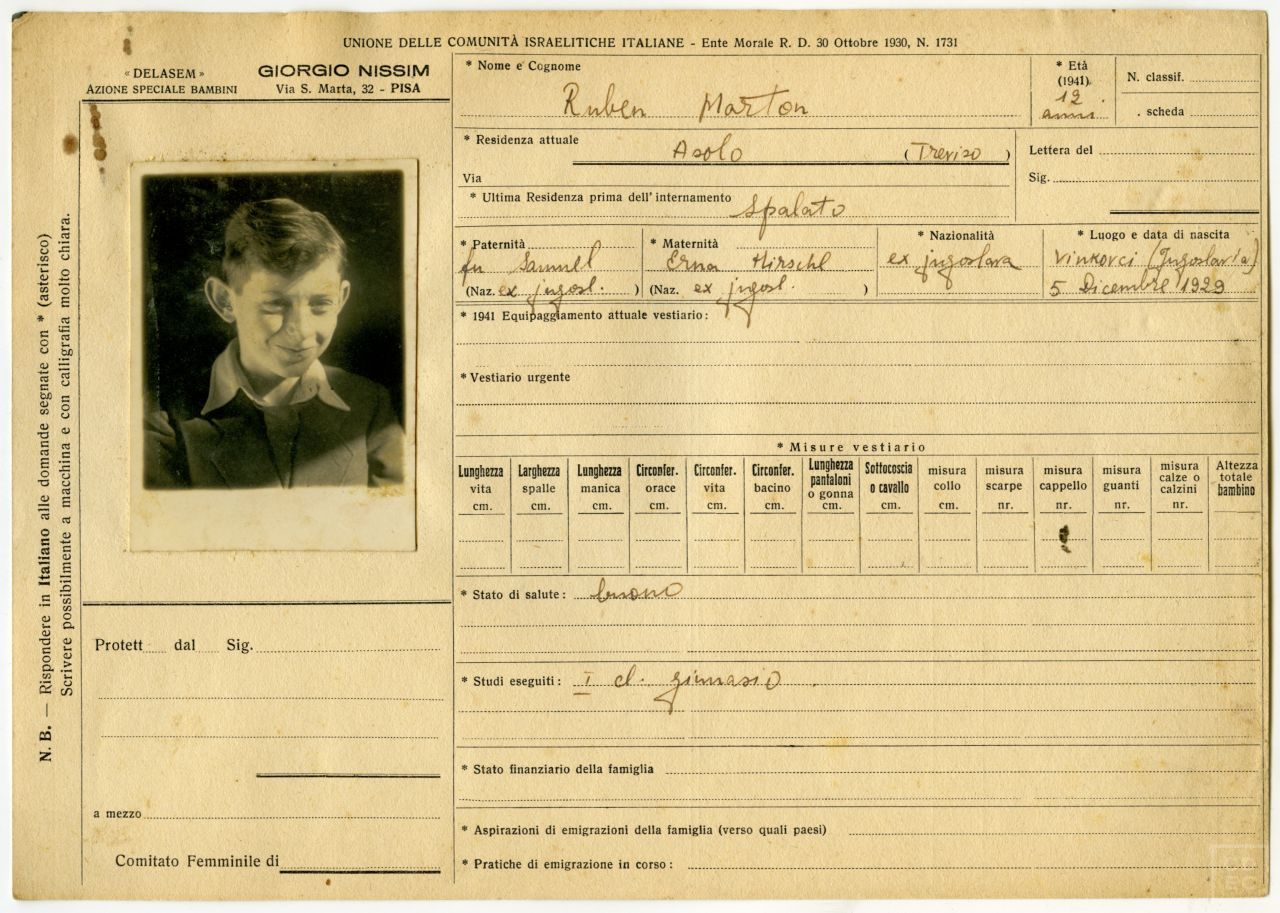 UNIONE DELLE COMUNITÀ ISRAELITICHE ITALIANE - Ente Morale R. D. 30 Ottobre 1930, N. 1731
« DELASEM »
AZIONE SPECIALE BAMBINI
GIORGIO NISSIM
Via S. Marta, 32 - PISA
N. B. — Rispondere in Italiano alle domande segnate con * (asterisco)
Scrivere possibilmente a macchina e con calligrafia molto chiara.
* Nome e Cognome
Ruben Marton
* Età
(1941)
12
anni
N. classif.
. scheda
* Residenza attuale
Asolo (Treviso)
Via
Lettera del
Sig.
* Ultima Residenza prima dell'internamento Spalato
* Paternità
fu Samuel
(Naz. ex jugosl. )
* Maternità
Erna Hirschl
(Naz. ex jugosl. )
* Nazionalità
ex jugoslava
* Luogo e data di nascita
Vinkovci (Jugoslavia)
5 Dicembre 1929
* 1941 Equipaggiamento attuale vestiario:
* Vestiario urgente
* Misure vestiario
Lunghezza vita cm.
Larghezza spalle cm.
Lunghezza manica cm.
Circonfer. orace cm.
Circonfer. vita cm.
Circonfer. bacino cm.
Lunghezza pantaloni o gonna cm.
Sottocoscia o cavallo cm.
misura collo cm.
misura scarpe nr.
misura cappello nr.
misura guanti nr.
misura calze o calzini nr.
Altezza totale bambino
* Stato di salute: buono
* Studi eseguiti: I cl. gimnasio
* Stato finanziario della famiglia
* Aspirazioni di emigrazioni della famiglia (verso quali paesi)
* Pratiche di emigrazione in corso:
Protett dal Sig.
a mezzo
Comitato Femminile di